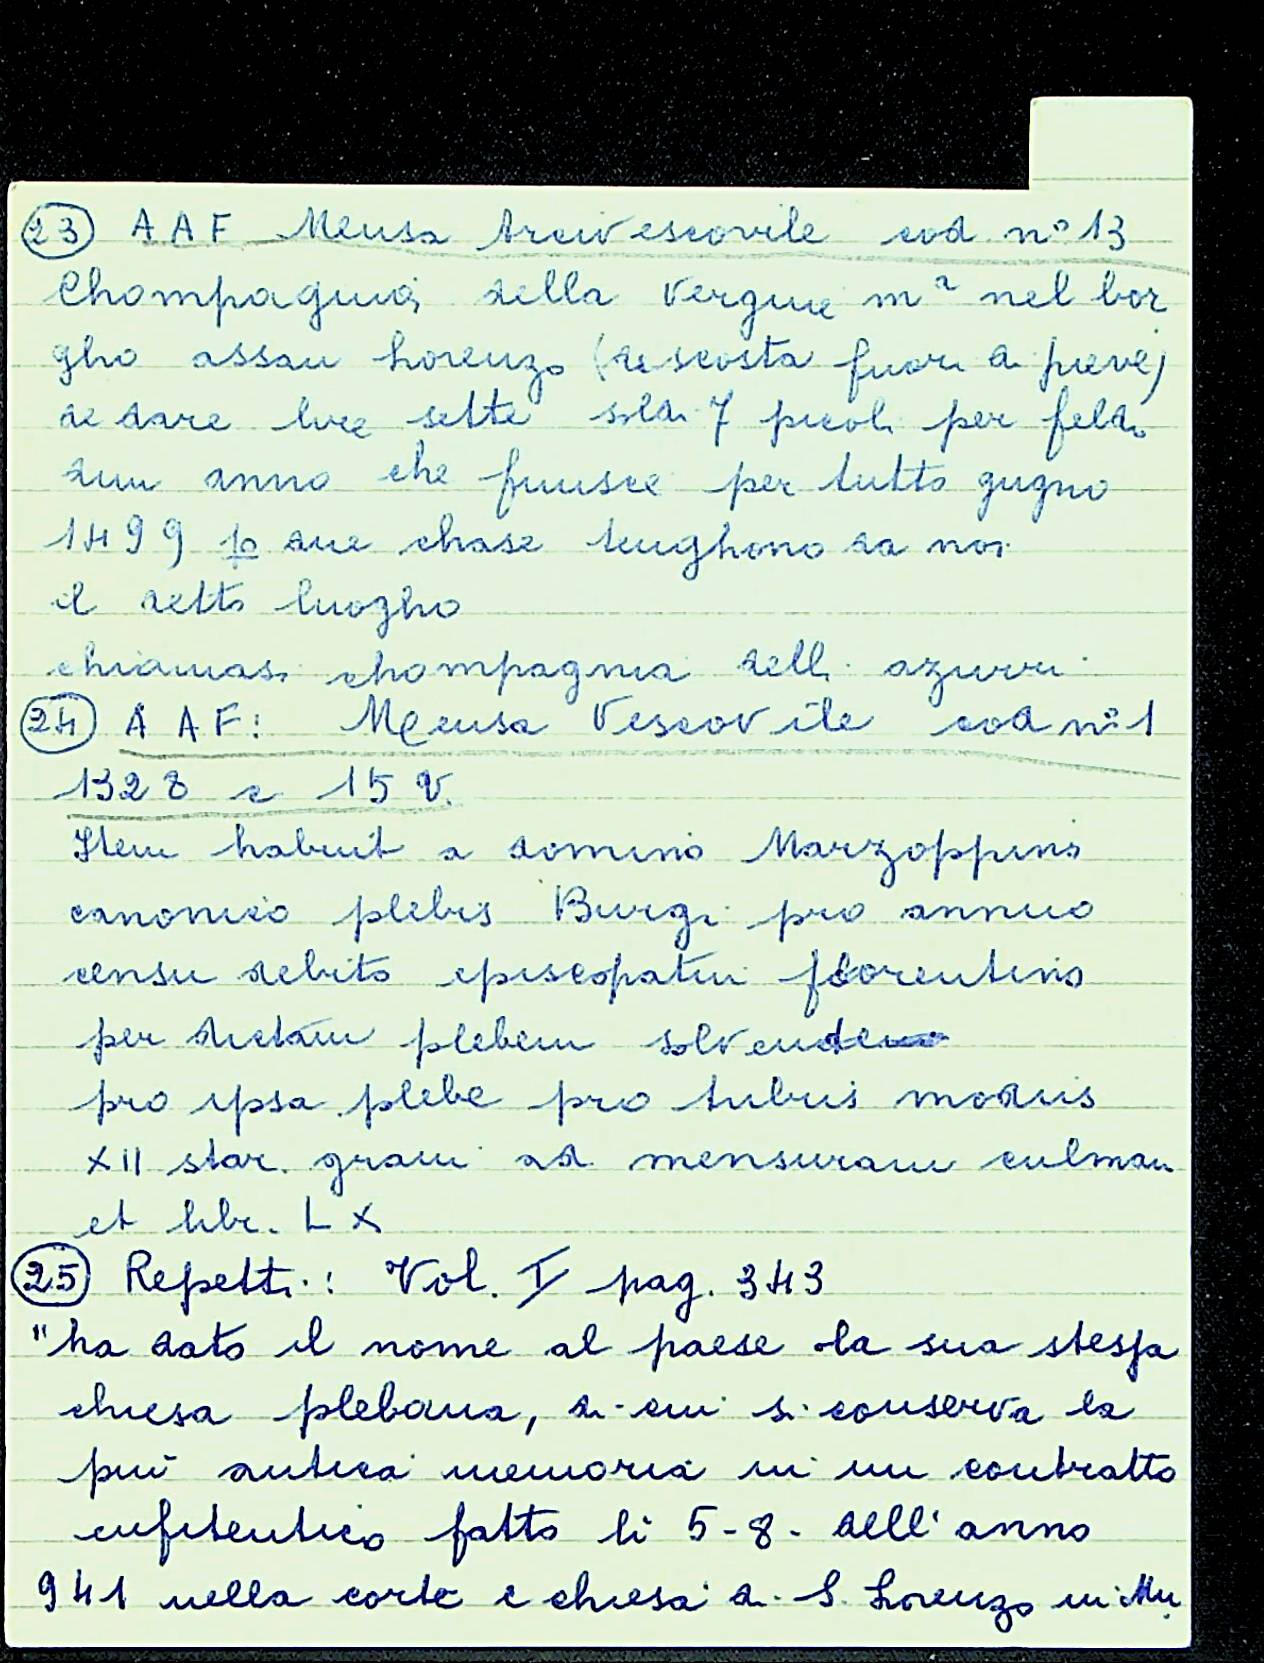 23 AAF Mensa Arcivescovile cod n° 13
Chompagnia della Vergine m a nel bor
gho assan Lorenzo (discosta fuori di pieve)
de dare lire sette soldi 7 picoli per
dun anno che finisce per tutto gugno
1499 po due chase tenghono da noi
il detto luogho
chiamasi chompagnia delli azurri
24 AAF: Mensa Vescovile cod n° 1
1328 c 15 v.
Item habuit a domino Marzoppino
canonico plebis Burgi pro annuo
censu debito episcopatui florentino
per dictam plebem
pro ipsa plebe pro tribus modiis
XII star. grani ad mensuram
et libr. LX
25 Repetti: Vol. I pag. 343
"ha dato il nome al paese la sua stessa
chiesa plebana, di cui si conserva la
più antica memoria in un contratto
enfiteutico fatto li 5-8- dell'anno
941 nella corte e chiesa di S. Lorenzo in Mu